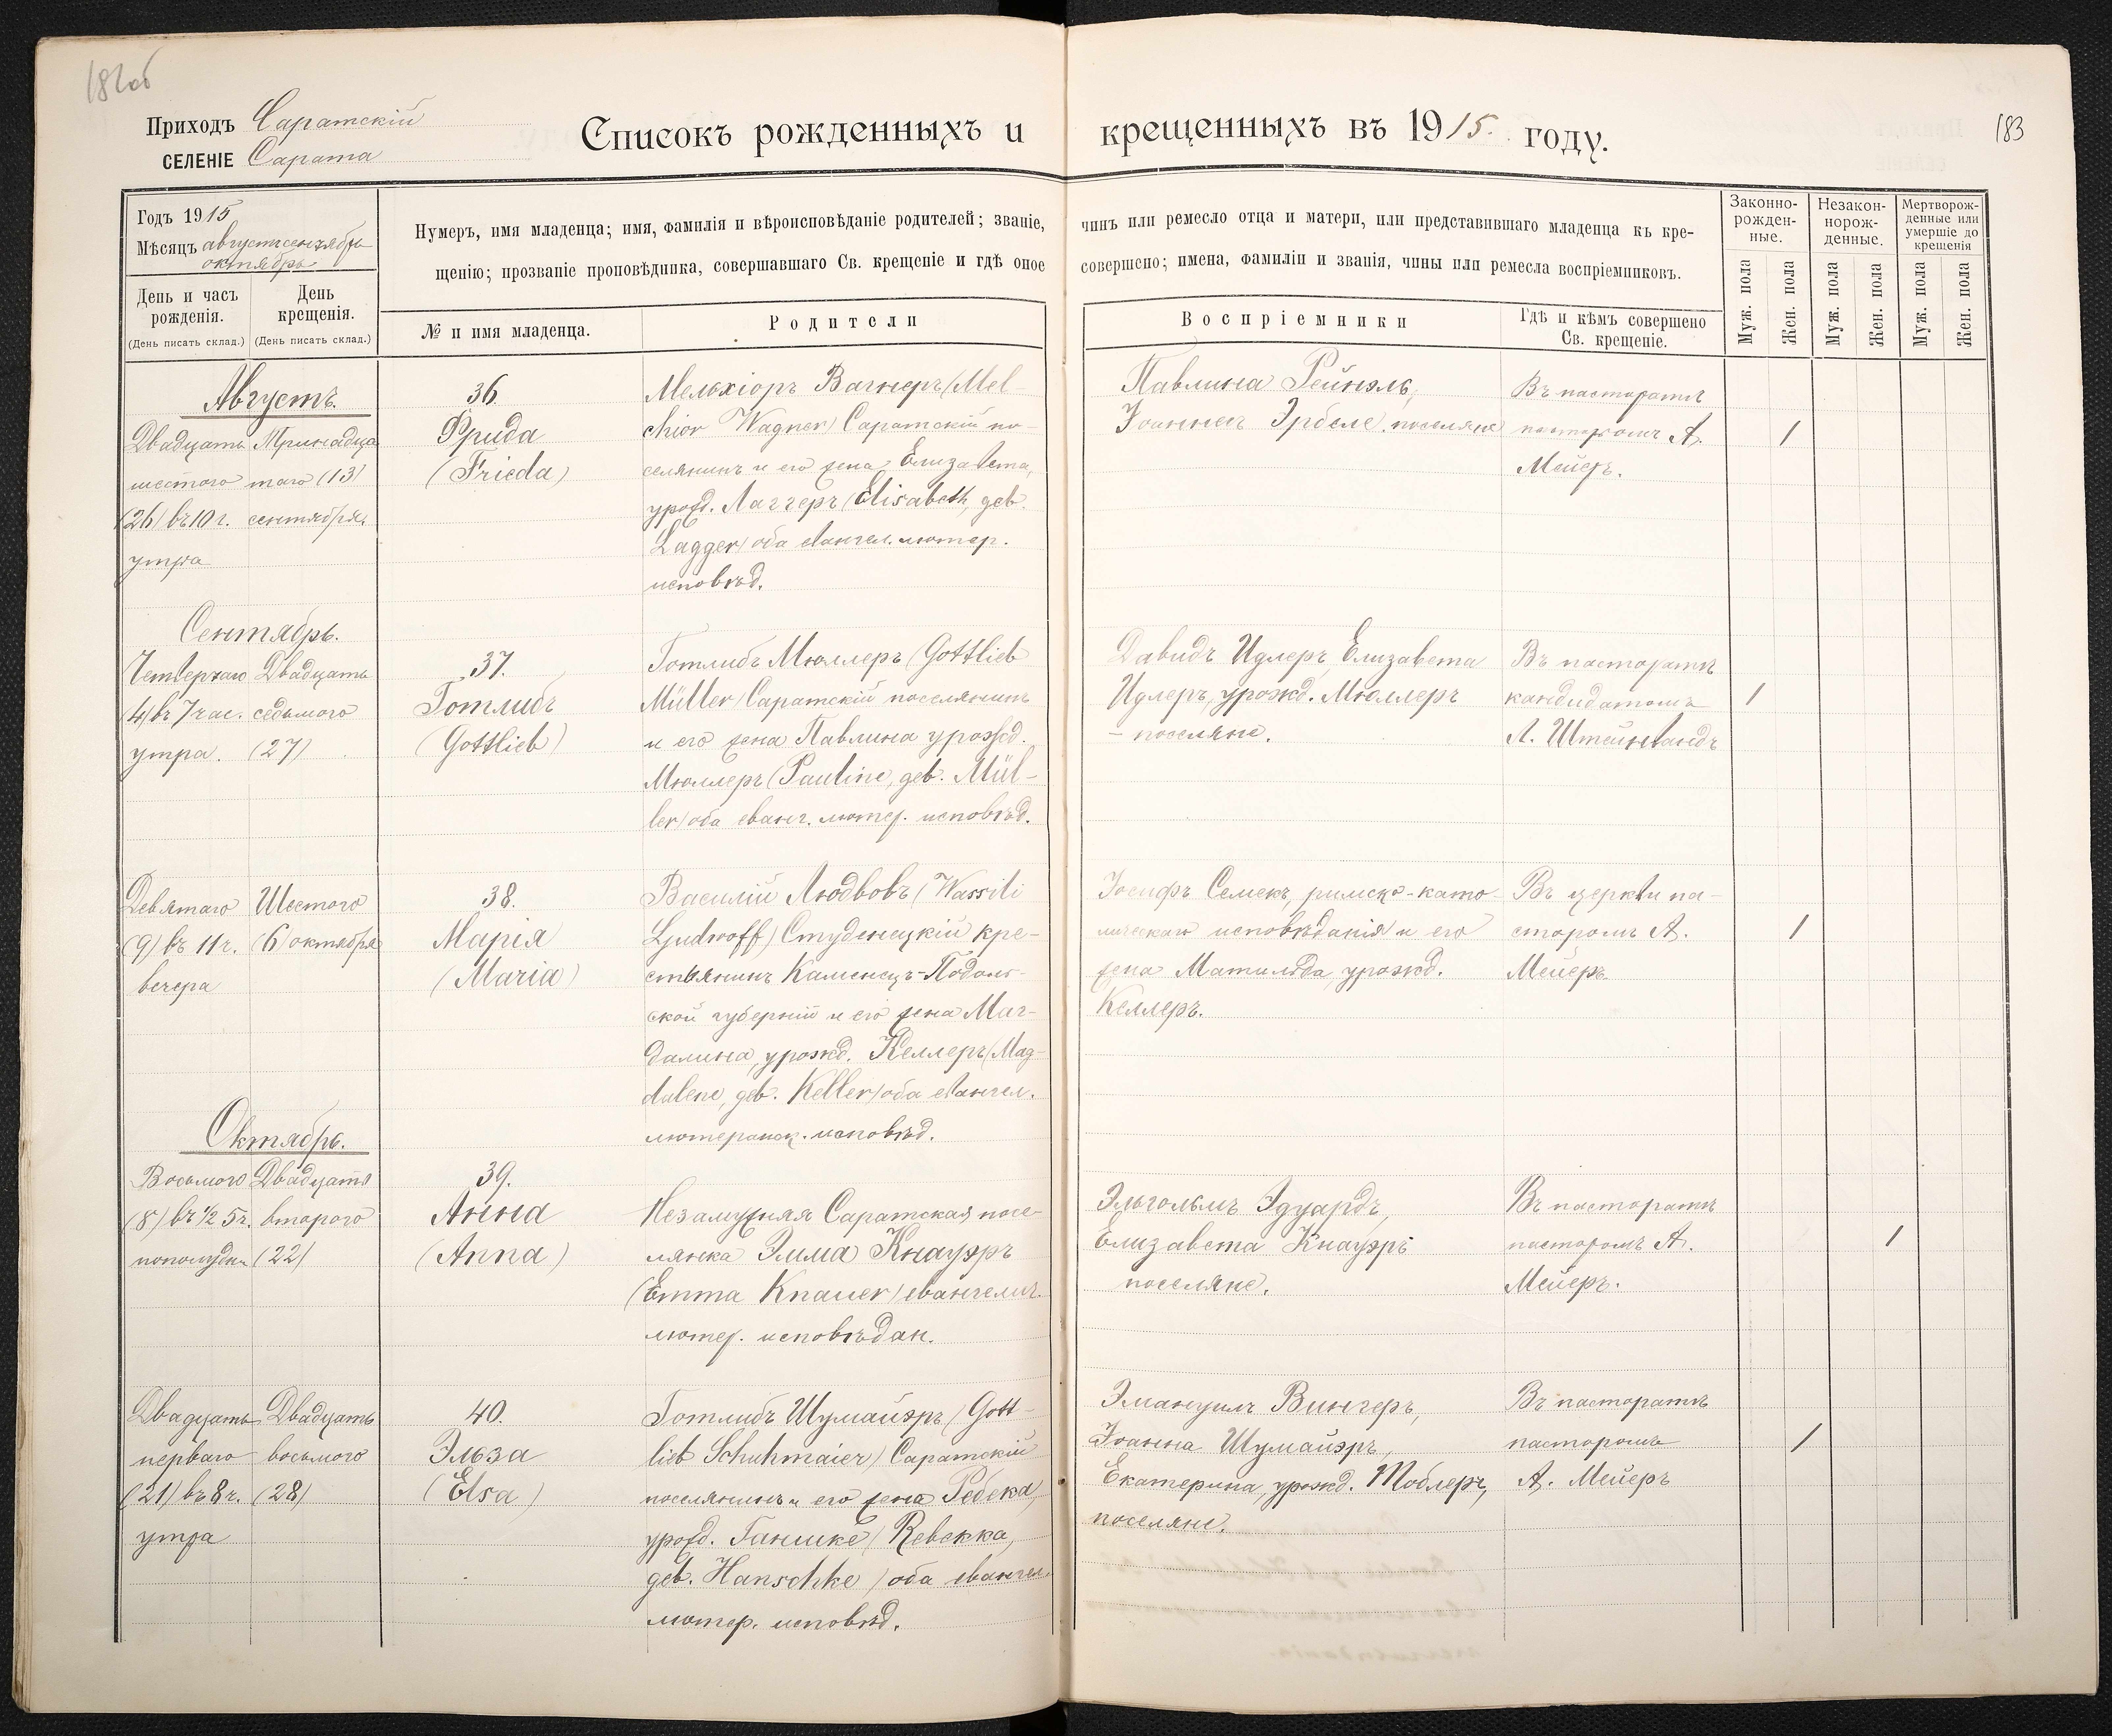 182об
183
Приходъ Саратскій
СЕЛЕНІЕ Сарата
Списокъ рожденныхъ и крещенныхъ въ 1915. году.
Годъ 1915
Мѣсяцъ августъ сентябрь
октябрь
День и часъ рожденія.
(День писать склад.)
День крещенія.
(День писать склад.)
Нумеръ, имя младенца; имя, фамилія и вѣроисповѣданіе родителей; званіе, чинъ или ремесло отца и матери, или представившаго младенца къ кре-
щенію; прозваніе проповѣдника, совершавшаго Св. крещеніе и гдѣ оное совершено; имена, фамиліи и званія, чины или ремесла воспріемниковъ.
№ и имя младенца.
Родители
Воспріемники
Гдѣ и кѣмъ совершено
Св. крещеніе.
Законно-
рожден-
ные.
Незакон-
норож-
денные.
Мертворож-
денные или
умершіе до
крещенія
Муж. пола
Жен. пола
Муж. пола
Жен. пола
Муж. пола
Жен. пола
Августъ.
Двадцать
шестого
(26) въ 10 г.
утра
Тринадца
таго (13)
сентября.
36.
Фрида
(Frieda)
Мельхіоръ Вагнеръ (Mel-
chior Wagner) Саратскій по-
селянинъ и его жена Елизавета,
урожд. Лаггеръ (Elisabeth, geb.
Lagger) оба евангел. лютер.
исповѣд.
Павлина Рейнэль,
Іоаннесъ Эрбеле, поселяне
Въ пасторатѣ
пасторомъ А.
Мейеръ.
/
Сентябрь.
Четвертаго
(4) въ 7 час.
утра.
Двадцать
седьмого
(27)
37.
Готлибъ
(Gottlieb)
Готлибъ Мюллеръ (Gottlieb
Müller) Саратскій поселянинъ
и его жена Павлина урожд.
Мюллеръ (Pauline, geb. Mül-
ler) оба еванг. лютер. исповѣд.
Давидъ Идлеръ, Елизавета
Идлеръ, урожд. Мюллеръ
- поселяне.
Въ пасторатѣ
кандидатомъ
Л. Штейнвандъ
/
Девятаго
(9) въ 11 ч.
вечера
Шестого
(6) октября
38.
Марія
(Maria)
Василій Людвовъ (Wassili
Ljudwoff) Студенецкій кре-
стьянинъ Каменецъ-Подоль-
ской губерніи и его жена Маг-
далина, урожд. Келлеръ (Mag-
dalene, geb. Keller) оба евангел.
лютеранск. исповѣд.
Іосифъ Семекъ, римско-като-
лическаго исповѣданія и его
жена Матильда, урожд.
Келлеръ.
Въ церкви па-
сторомъ А.
Мейеръ
/
Октябрь.
Восьмого
(8) въ ½ 5 ч.
пополудни
Двадцать
второго
(22)
39.
Анна
(Anna)
Незамужняя Саратская посе-
лянка Эмма Кнауэръ
(Emma Knauer) евангелич.
лютер. исповѣдан.
Эльгольмъ Эдуардъ,
Елизавета Кнауэръ
поселяне.
Въ пасторатѣ
пасторомъ А.
Мейеръ.
/
Двадцать
перваго
(21) въ 8 ч.
утра
Двадцать
восьмого
(28)
40.
Эльза
(Elsa)
Готлибъ Шумайэръ (Gott-
lieb Schuhmaier) Саратскій
поселянинъ и его жена Ребека,
урожд. Ганшке (Rebekka,
geb. Hanschke) оба евангел.
лютер. исповѣд.
Эмануилъ Вингеръ,
Іоанна Шумайэръ,
Екатерина, урожд. Тоблеръ,
поселяне.
Въ пасторатѣ
пасторомъ
А. Мейеръ
/